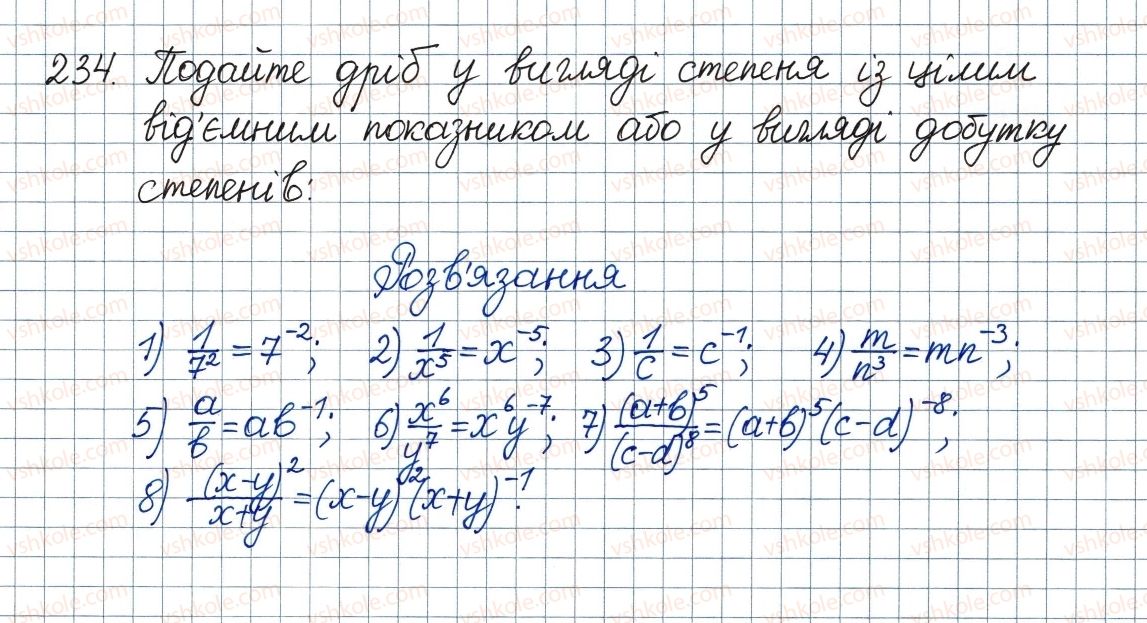 234. Подайте дріб у вигляді степеня із цілим
від'ємним показником або у вигляді добутку
степенів:
Розв'язання
1) 1/7² = 7⁻²; 2) 1/x⁵ = x⁻⁵; 3) 1/c = c⁻¹; 4) m/n³ = mn⁻³;
5) a/b = ab⁻¹; 6) x⁶/y⁷ = x⁶y⁻⁷; 7) (a+b)⁵/(c-d)⁸ = (a+b)⁵(c-d)⁻⁸;
8) (x-y)²/x+y = (x-y)²(x+y)⁻¹.